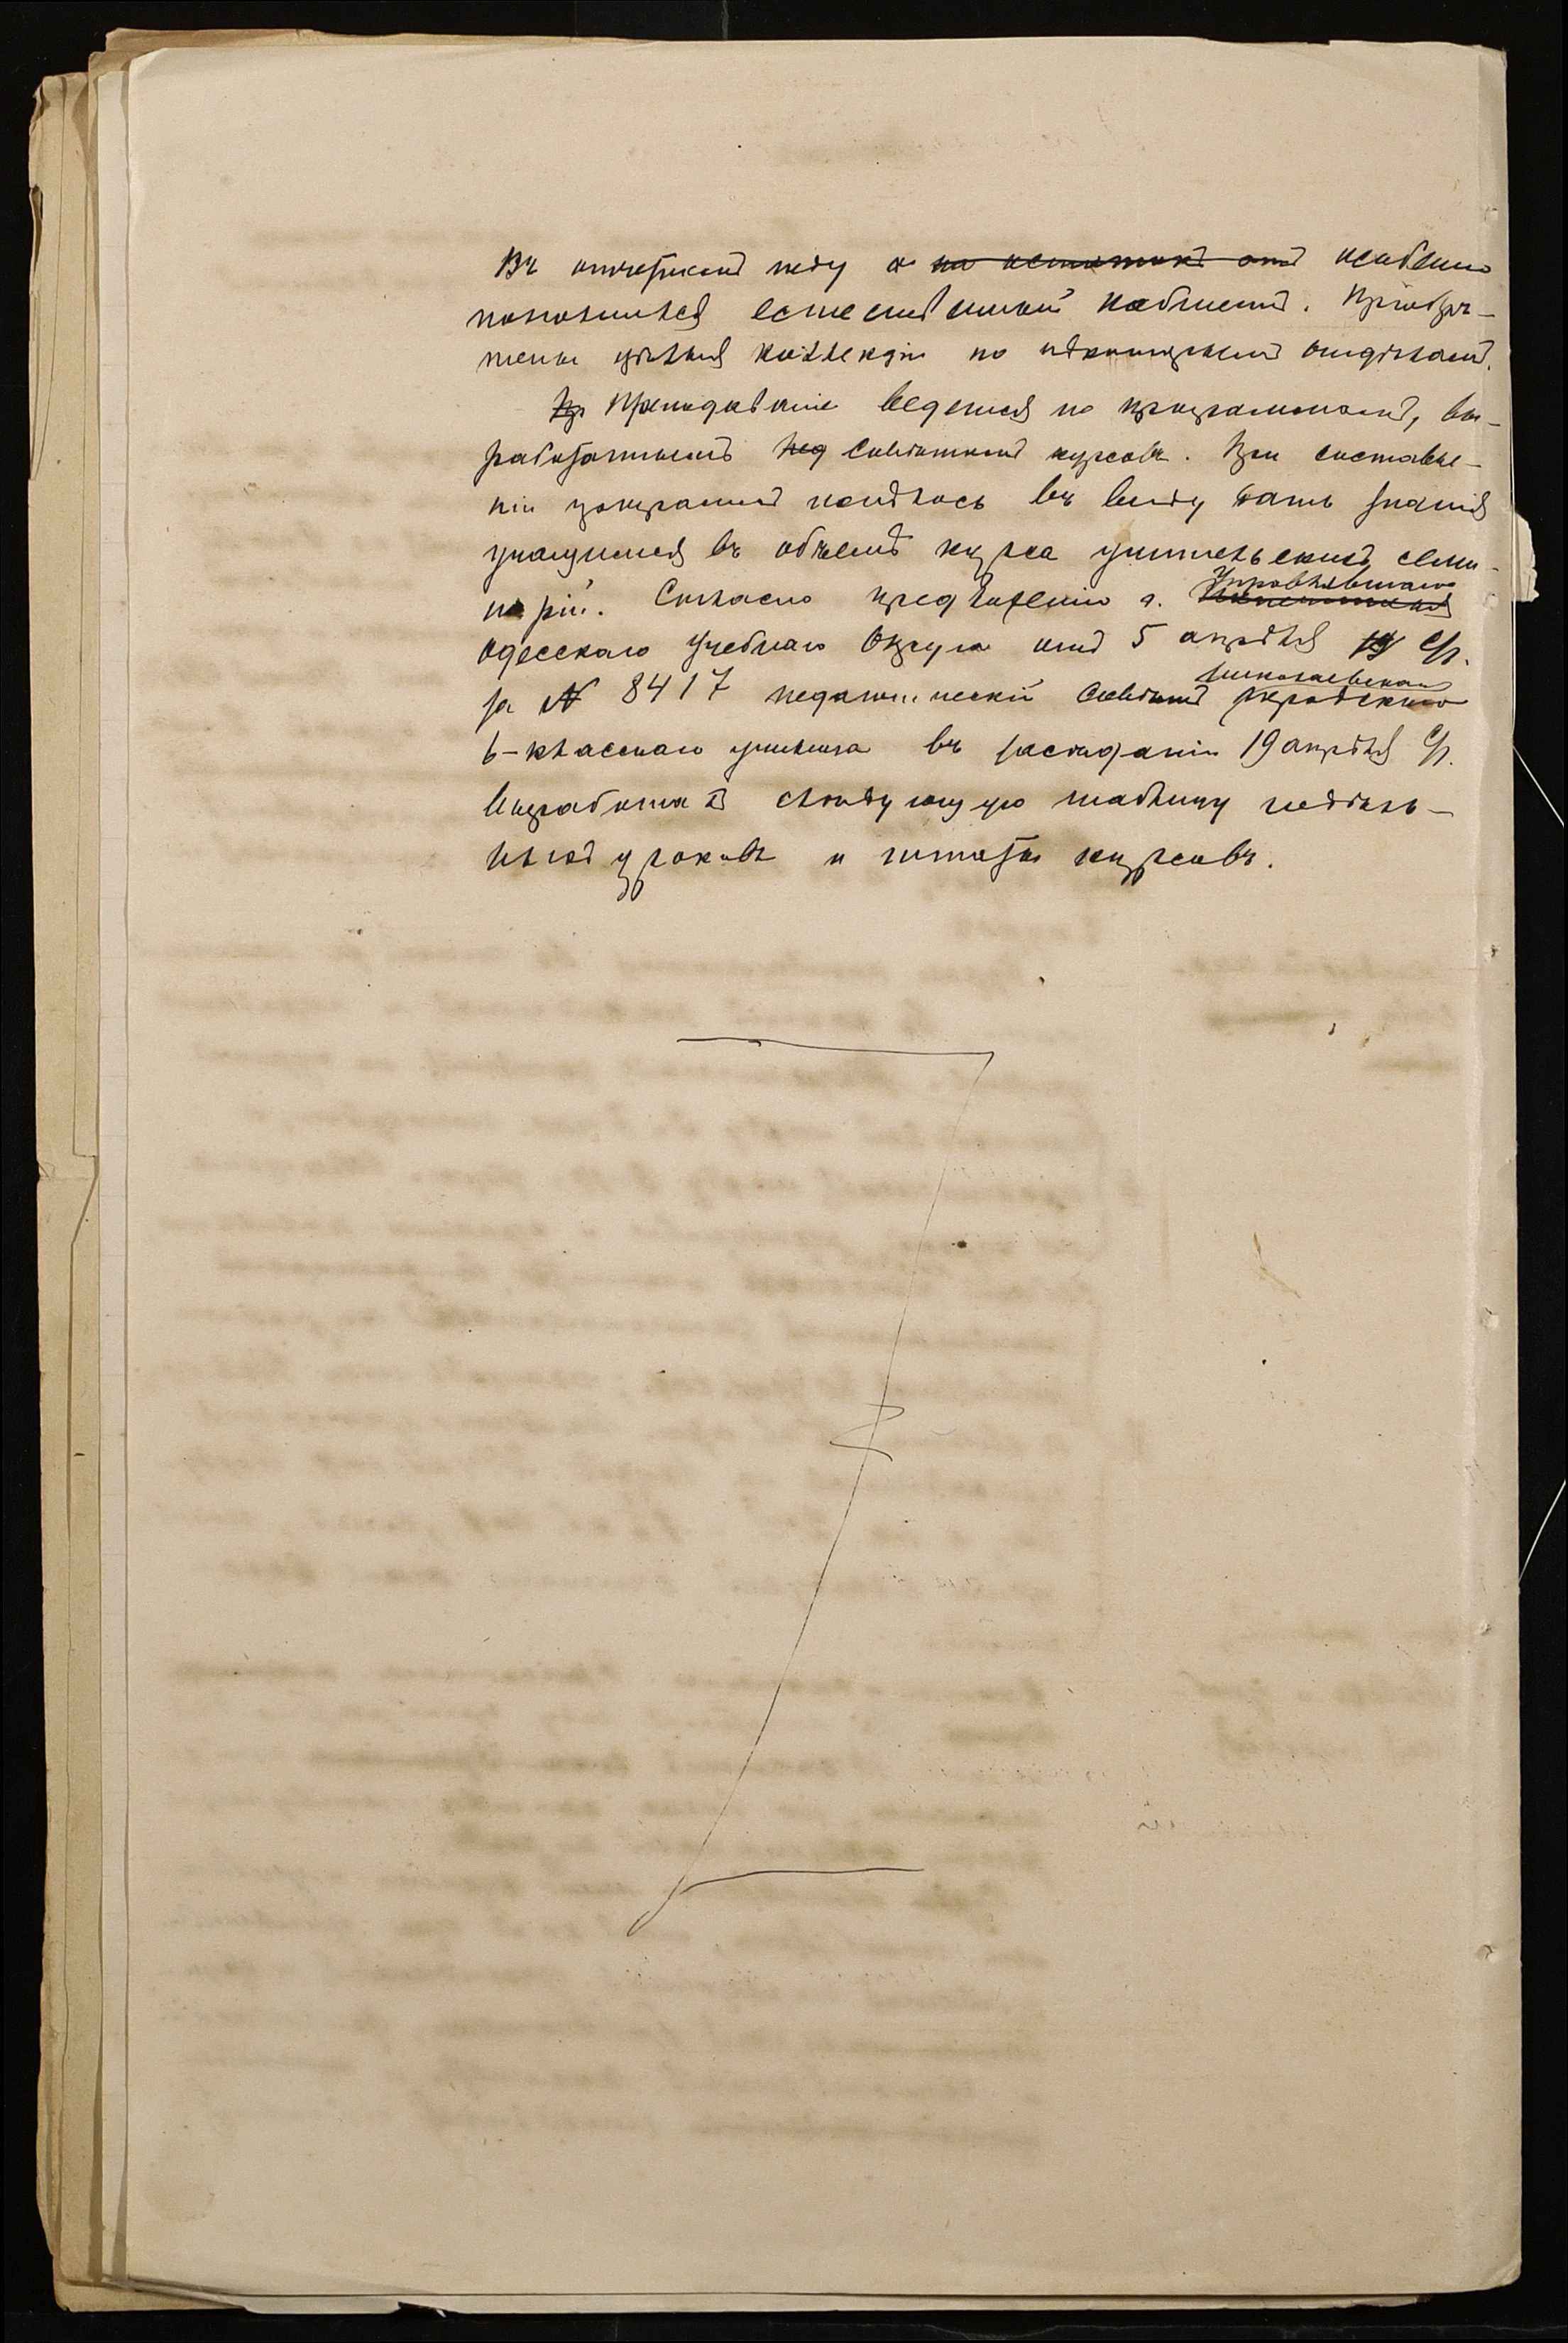 Въ отчетномъ году и на остатокъ отъ особенно
пополнился естественный кабинетъ. Пріобрѣ-
тены цѣлыя коллекціи по нѣкоторымъ отдѣламъ.
Пр Преподаваніе ведется по программамъ, вы-
работаннымъ пед Совѣтомъ курсовъ. При составле-
ніи программъ имѣлось въ виду дать знанія
учащимся въ объемѣ курса учительскихъ семи-
нарій. Согласно предложенію г. Управлявшаго
Одесскаго Учебнаго Округа отъ 5 апрѣля 19 с/г.
за № 8417 педагогическій Совѣтъ Николаевскаго городского
6-класснаго училища въ засѣданіи 19 апрѣля с/г.
выработалъ слѣдующую таблицу недѣль-
ныхъ уроковъ и штаты курсовъ.